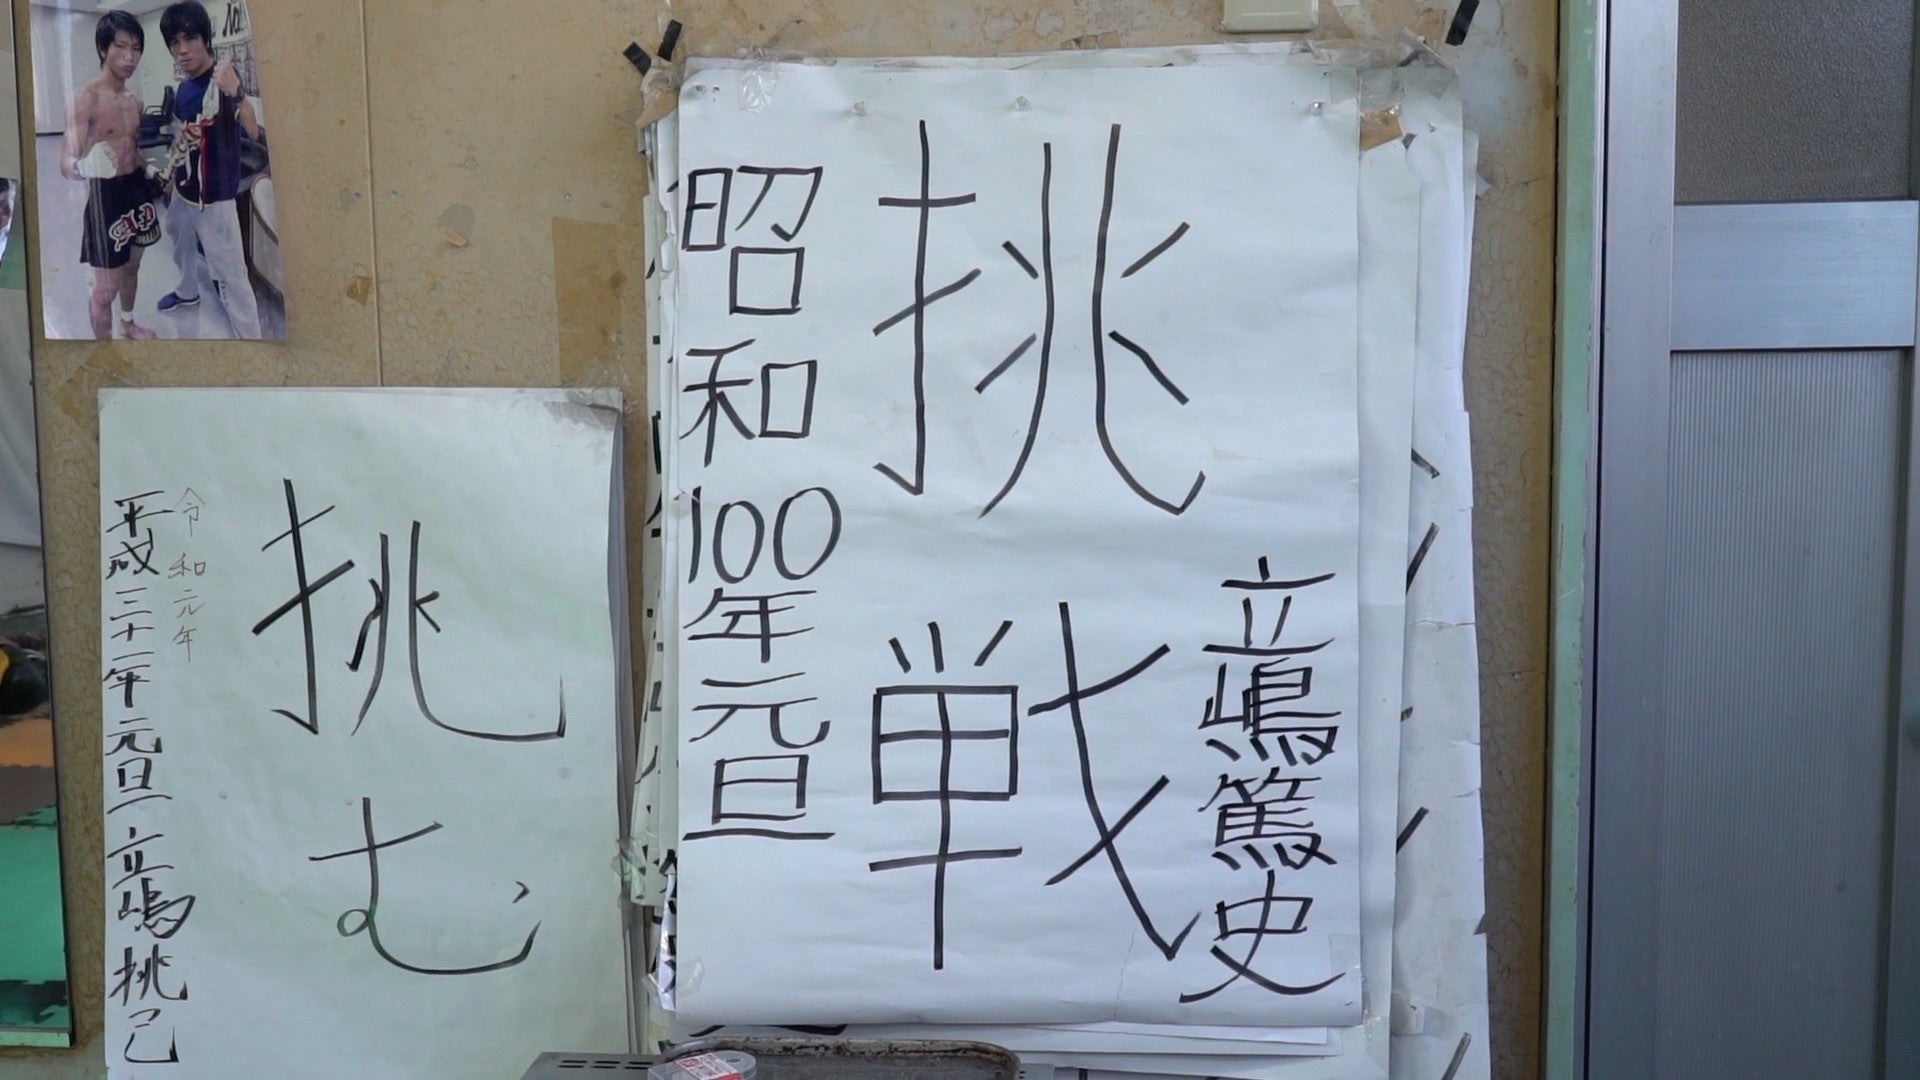 挑戦
立嶋篤史
昭和100年元旦
挑む
令和元年
平成三十一年元旦 立嶋挑己